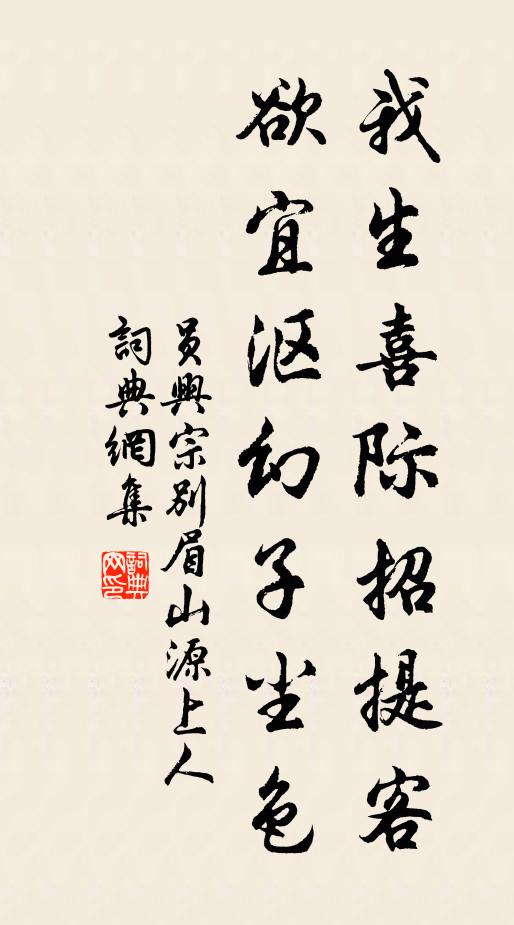 我生喜际招提客
欲宜沤幻子尘色
员興宗别眉山源上人
詞典網集
詞典網印